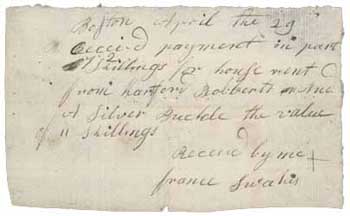 Boston April the 29
Receid payment in part
Shillings for house rent
from Robberts
A Silver Buckle the value
of 11 Shillings
Receved by me
france